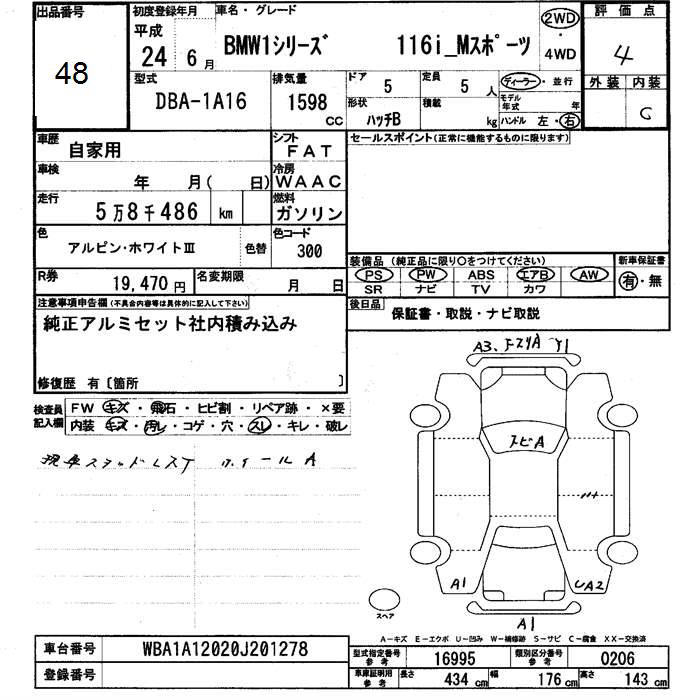 出品番号
48
初度登録年月
平成
24 6 月
車名・グレード
BMW1シリーズ 116i_Mスポーツ
2WD
・
4WD
評価点
4
型式
DBA-1A16
排気量
1598
CC
ドア
5
定員
5 人
形状
ハッチB
積載
kg
ディーラー・並行
モデル年式 年
ハンドル 左・右
外装 内装
C
車歴
自家用
シフト
FAT
車検
年 月( 日)
冷房
WAAC
走行
5万8千486 km
燃料
ガソリン
色
アルピン・ホワイトIII
色替
色コード
300
R券
19,470円
名変期限
月 日
セールスポイント(正常に機能するものに限ります)
装備品 (純正品に限り○をつけてください)
新車保証書
PS PW ABS エアB AW
SR ナビ TV カワ
有・無
後日品
保証書・取説・ナビ取説
注意事項申告欄(不具合内容等は具体的に記入して下さい)
純正アルミセット社内積み込み
修復歴 有〔箇所 〕
検査員
記入欄
FW キズ・飛石・ヒビ割・リペア跡・×要
内装 キズ・汚レ・コゲ・穴・スレ・キレ・破レ
現車スタッドレスT ホイールA
A3、
トビA
A1
UA2
A1
スペア
A−キズ E−エクボ U−凹み W−補修跡 S−サビ C−腐食 XX−交換済
車台番号
WBA1A12020J201278
登録番号
型式指定番号
参考
16995
類別区分番号
参考
0206
車庫証明用
参考
長さ
434 cm
幅
176 cm
高さ
143 cm